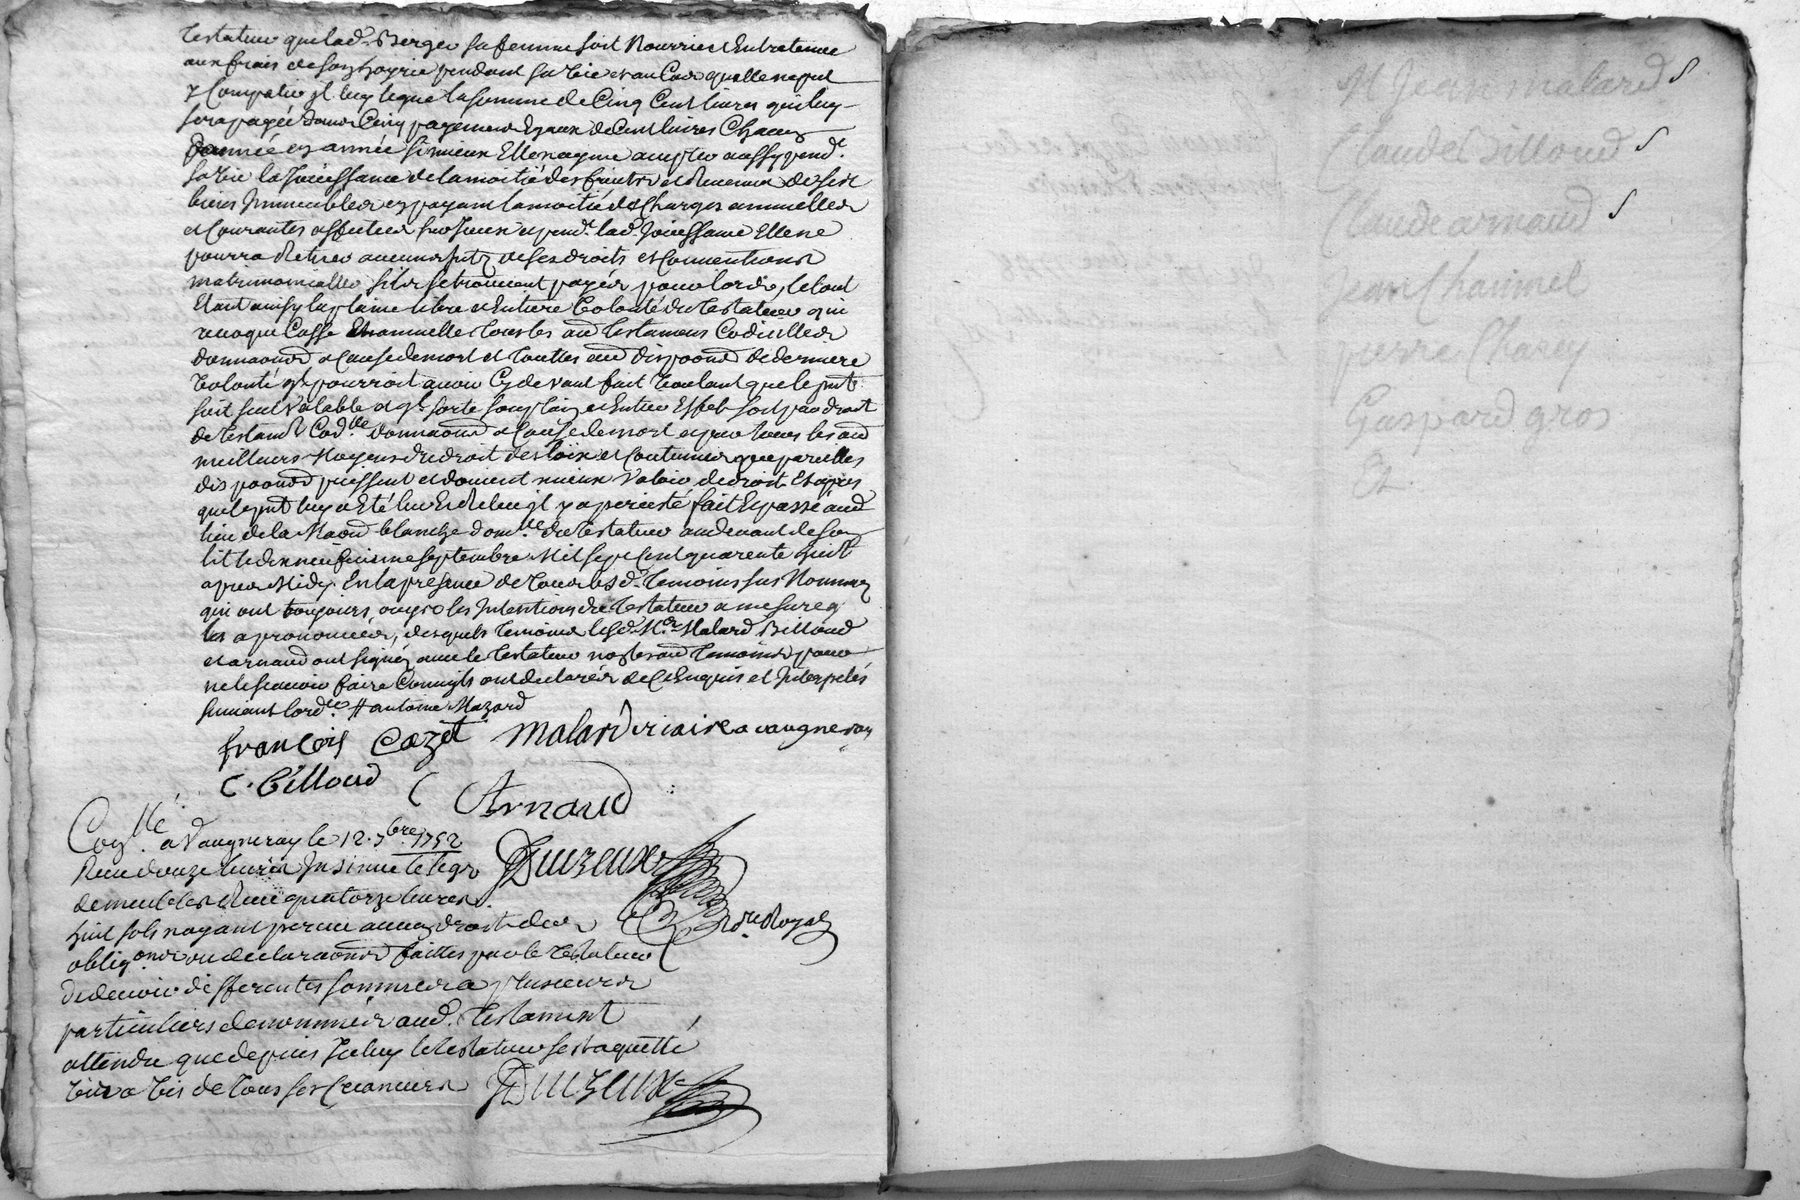 testateur que lad. Berger sa femme soit Nourrie et Entretenue
aux frais de son hoyrie pendant sa vie et au Cas quelle ne put
y Compatir il luy legue la somme de Cinq Cent livres qui luy
sera payée dans Cinq payemens Egaux de Cent livres Chacun
d'année en année si mieux Elle nayme accepter aussy pend.t
sa vie la Jouissance de la moitié des fruits et Revenus de ses
biens Immeubles en payant la moitié des Charges annuelles
et Courantes affectées sur Iceux et pend.t lad. Jouissance Elle ne
pourra Retirer aucuns de ses droits et Conventions
matrimonialles sils se trouvent payés pour lors, le tout
Etant ainsy la plaine libre et Entiere Volonté du testateur qui
revoque Casse et annulle tous les au.d testamens Codicilles
donnaons a Cause de mort et touttes au.d dispoons de derniere
Volonté qil pourroit avoir Cy devant fait voulant que le pnt
soit seul Valable et qil sorte son plain et Entier Effet soit par droit
de testam.t Cod.lle donnaons a Cause de mort et par tous les au.d
meilleurs Moyens du droit des loix et Coutumes que pareilles
dispoons puissent et doivent mieux Valoir de droit Et apres
que le pnt luy a Eté lu Et Relu il y a persisté fait Et passé aud.
lieu de la Maon blanche dom.lle du testateur au devant de son
lit le dixneufvieme septembre Mil sept Cent quarente huit
apres Midy En la presence de tous lesd. temoins sus Nommez
qui ont toujours ouy les Intentions du testateur a mesure q
les a prononcées, desquels temoins lesd. Mr. Malard Billoud
et arnaud ont signéz avec le testateur non les au.d temoins pour
ne le scavoir faire Comme ils ont declaréz de Ce Enquis et Interpelés
suivant lord.ce # antoine Mazard
françois Cozet Malard vicaire a vaugneray
C. Billoud C Arnaud
Con.llé a Vaugneray le 12. 7bre. 1752
Recu douze livres Insinué le legs
de meubles Recu quatorze livres
huit sols nayant percu aucun droit des
oblig.ons ou declaraons faittes par le testateur
de devoir differentes sommes a plusieurs
particuliers denommés aud. testament
attendu que depuis Iceluy le testateur sest aquitté
vis a vis de tous ses Creanciers
Duzeux
N.re Royal
Duzeux
Mr Jean malard S
Claude Billoud S
Claude arnaud S
Jean Chaumel
pierre Chazey
Gaspard gros
Et